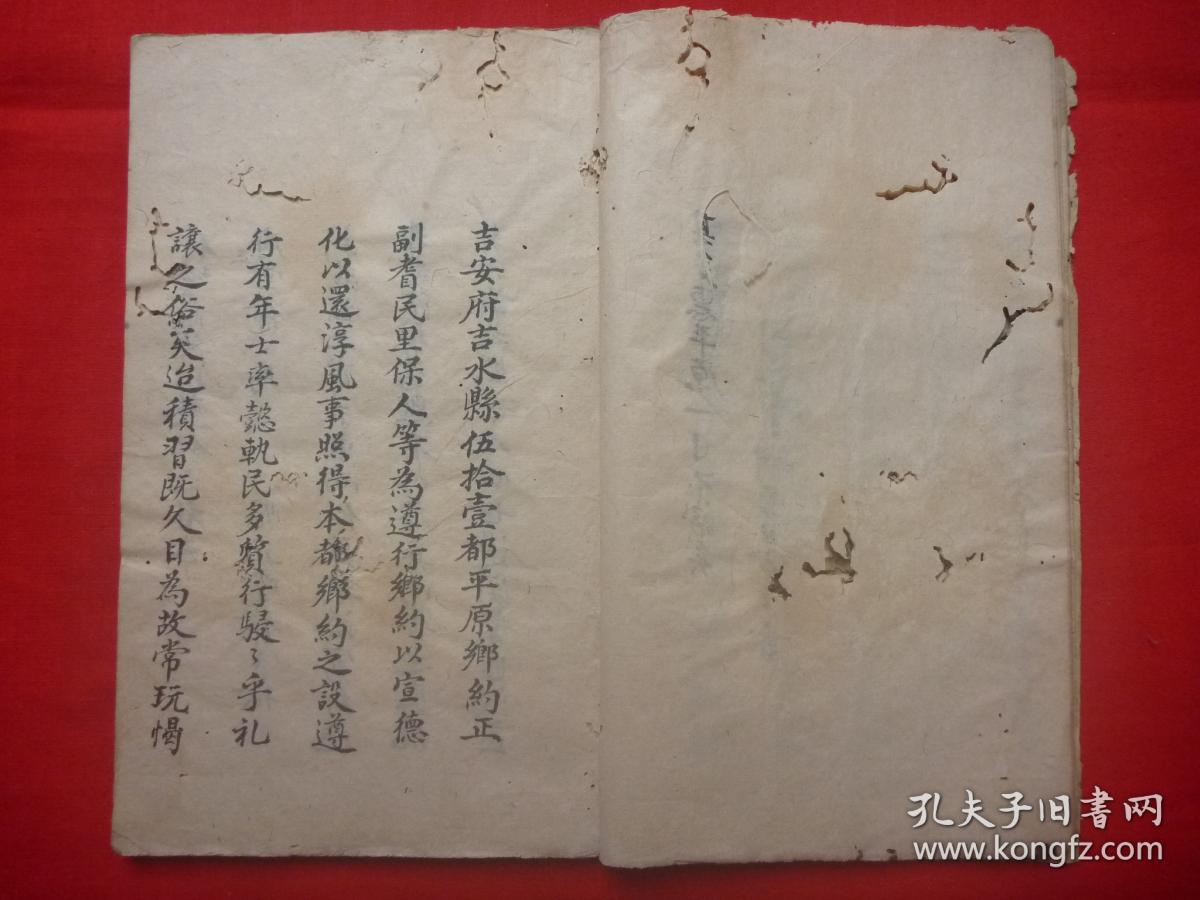 吉安府吉水縣伍拾壹都平原鄉約正
副耆民里保人等為遵行鄉約以宣德
化以還淳風事照得本都鄉約之設遵
行有年士率懿軌民多質行駸〻乎礼
讓之俗矣迨積習既久目為故常玩愒
孔夫子旧书网
www.kongfz.com